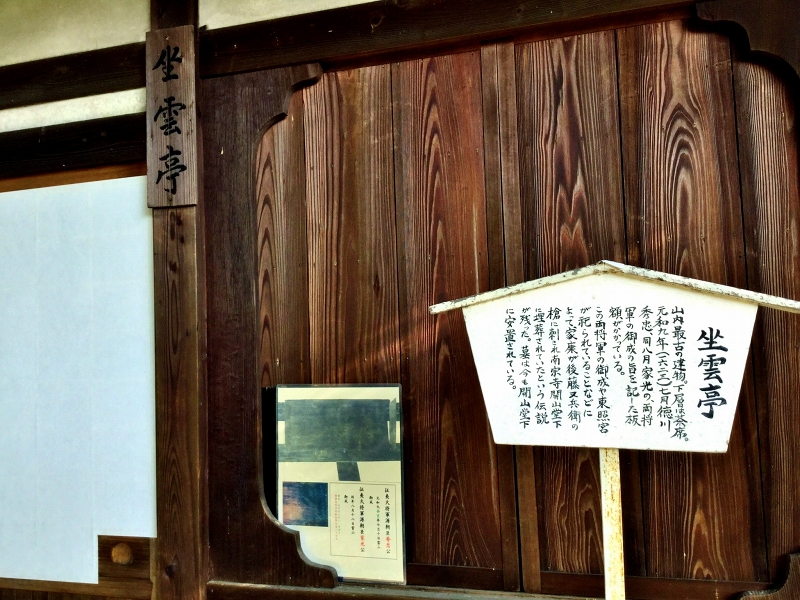 坐雲亭
坐雲亭
山内最古の建物、下層は茶席。
元和九年(一六二三)七月徳川
秀忠、同八月家光の、両将
軍の御成の旨を記した板
額がかかっている。
この両将軍の御成や東照宮
が祀られていることなどに
よって家康が後藤又兵衛の
槍に刺され南宗寺開山堂下
に埋葬されていたという伝説
が残った。墓は今も開山堂下
に安置されている。